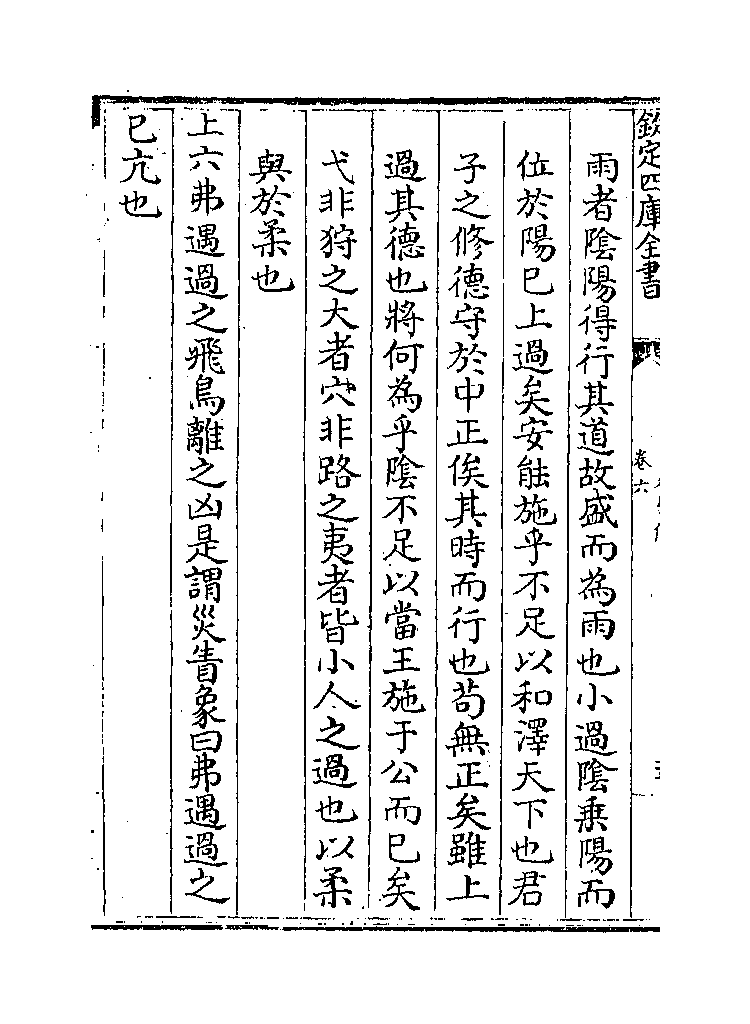 欽定四庫全書
卷六
雨者陰陽得行其道故盛而為雨也小過陰乗陽而
位於陽已上過矣安能施乎不足以和澤天下也君
子之修德守於中正俟其時而行也茍無正矣雖上
過其德也將何為乎陰不足以當王施于公而已矣
弋非狩之大者穴非路之夷者皆小人之過也以柔
與於柔也
上六弗遇過之飛鳥離之凶是謂災眚象曰弗遇過之
已亢也